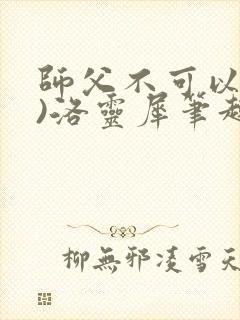 師父不可以
)洛靈犀筆趣
柳無邪凌雪天